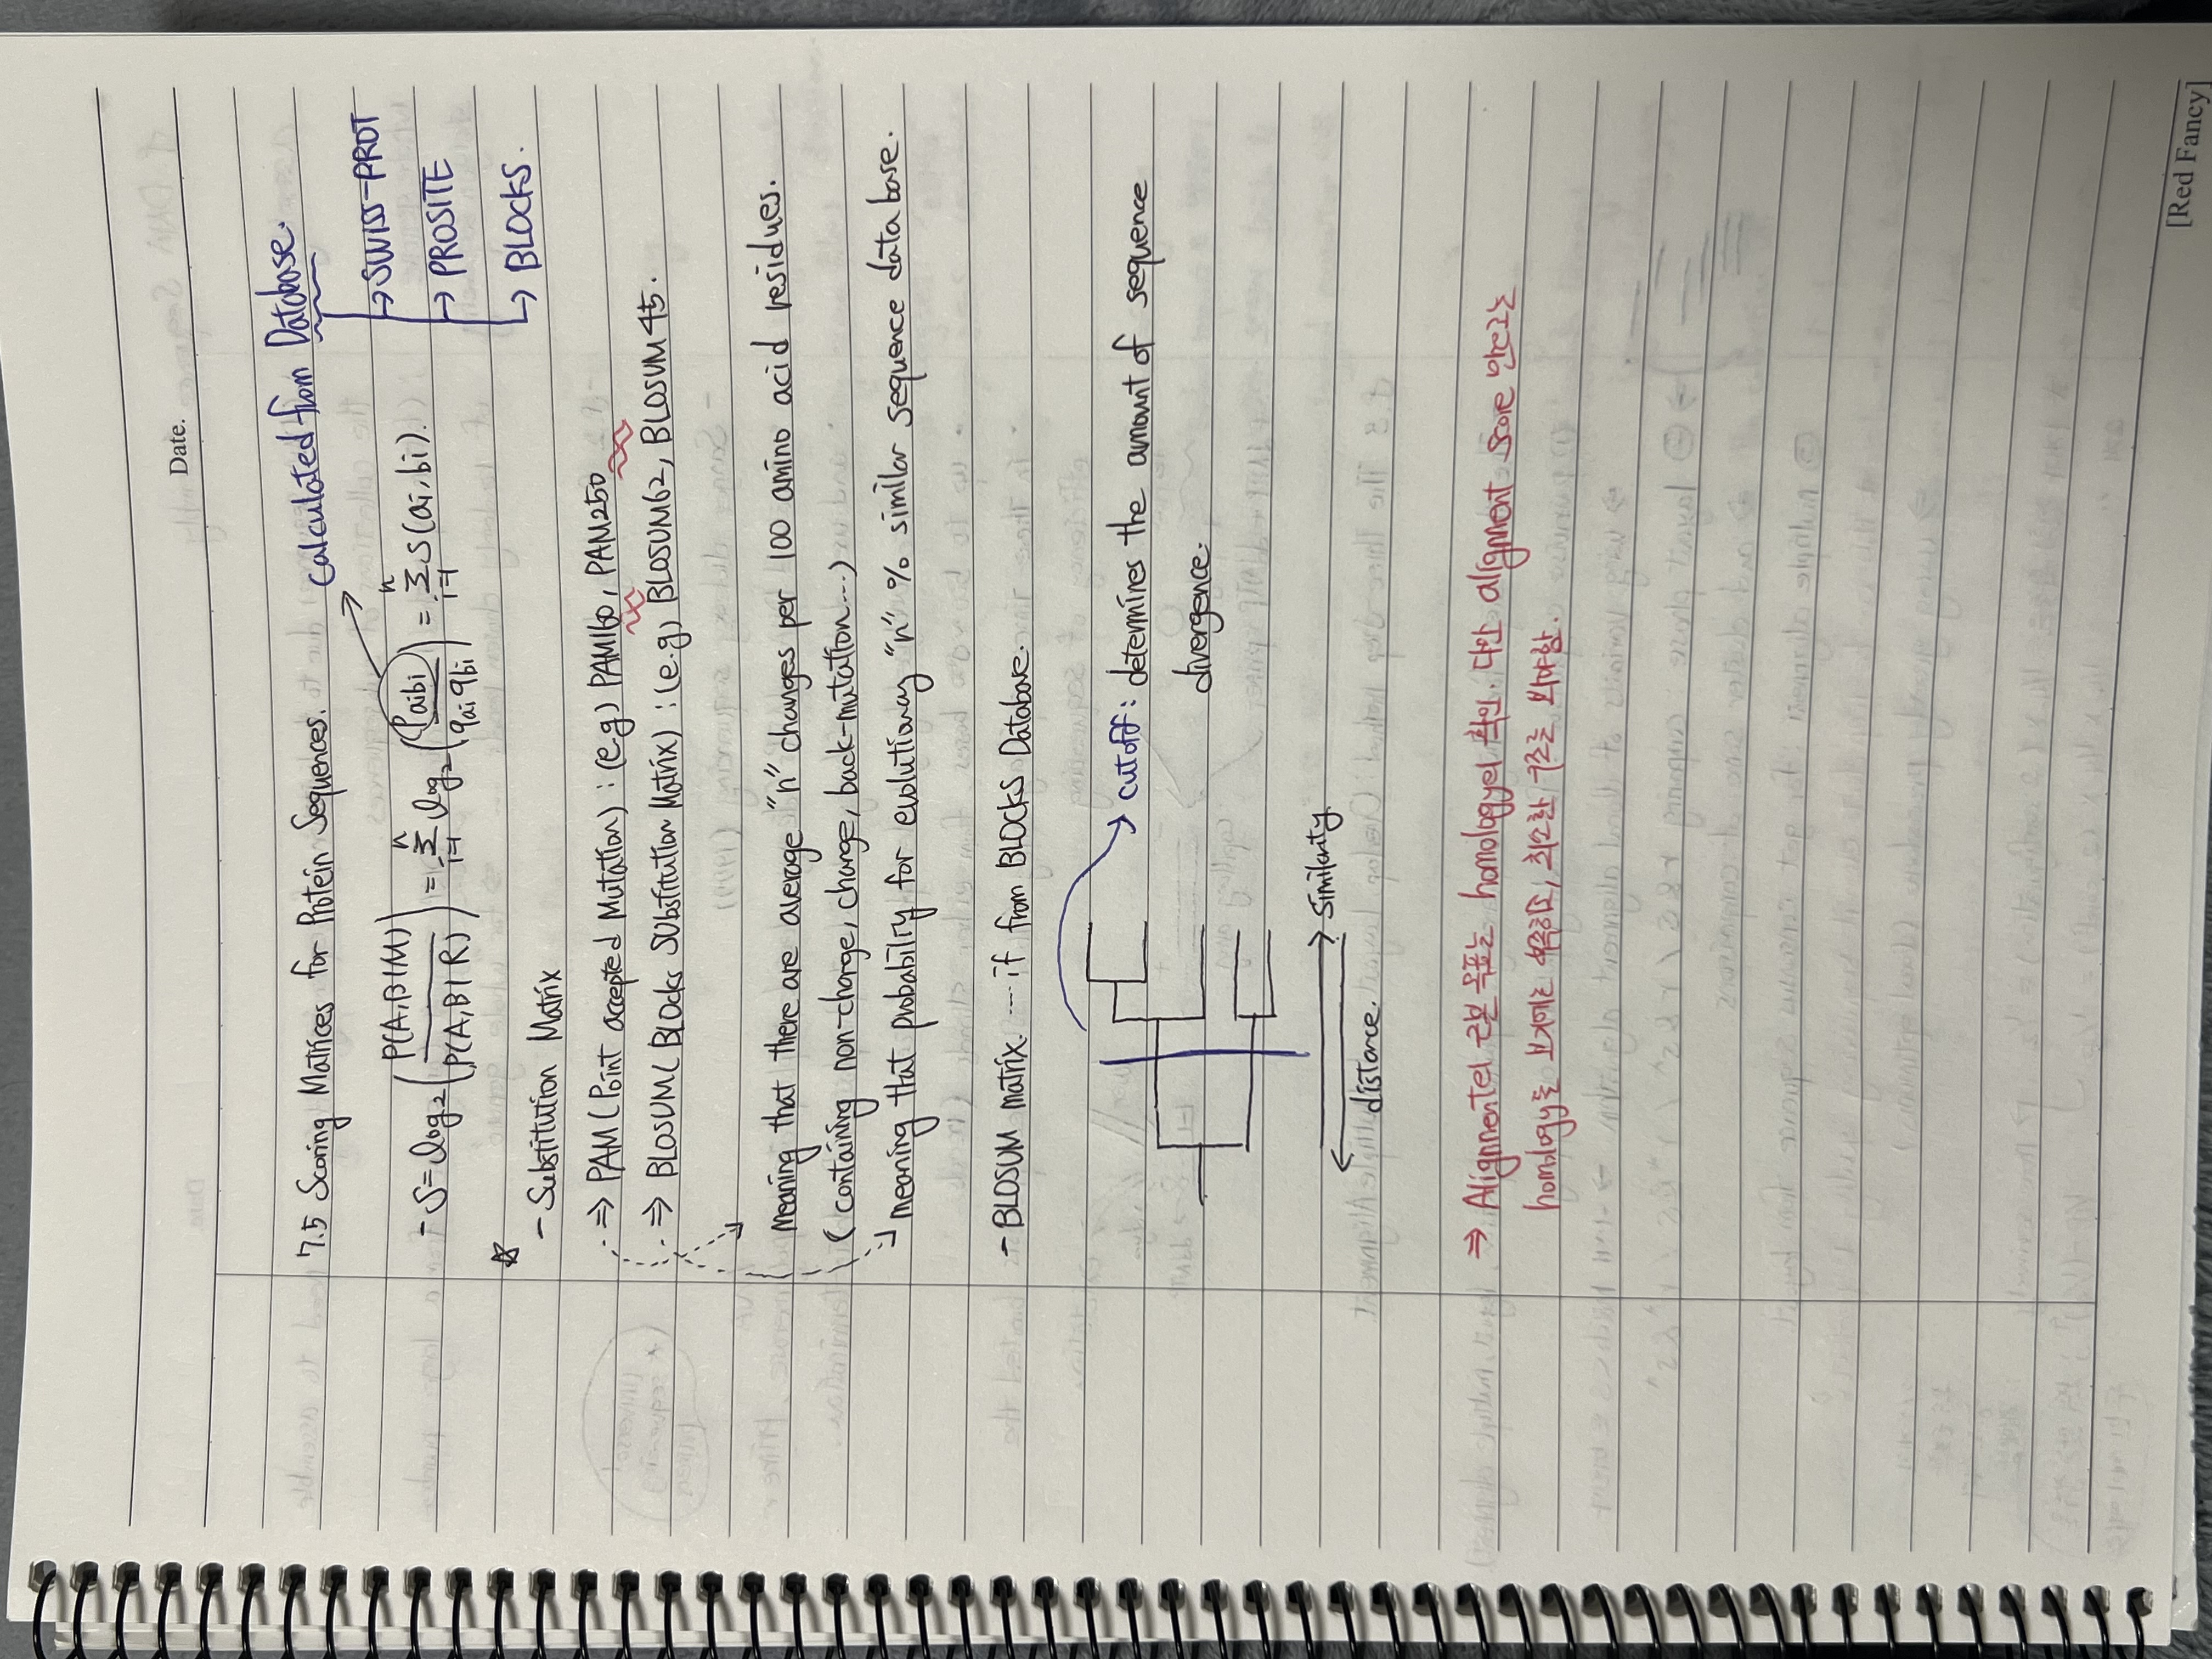 Date.
7.5 Scoring Matrices for Protein Sequences.
calculated from Database.
→ SWISS-PROT
→ PROSITE
→ BLOCKS.
- S = log₂ ( P(A,B|M) / P(A,B|R) ) = Σ_{i=1}^{n} log₂ ( Paibi / qai qbi ) = Σ_{i=1}^{n} S(ai, bi).
☆
- Substitution Matrix
⇒ PAM (Point accepted Mutation) : (e.g) PAM160, PAM250
⇒ BLOSUM (Blocks Substitution Matrix) : (e.g) BLOSUM62, BLOSUM45.
Meaning that there are average "n" changes per 100 amino acid residues.
(containing non-change, change, back-mutation...)
meaning that probability for evolutionary "n" % similar sequence database.
- BLOSUM matrix. ---- if from BLOCKS Database.
→ cutoff : determines the amount of sequence
divergence.
→ Similarity
distance.
⇒ Alignment의 근본 목표는 homology의 확인. 다만 alignment score 만으로는
homology를 보기에는 부족, 최소한 구조는 봐야함.
[Red Fancy]